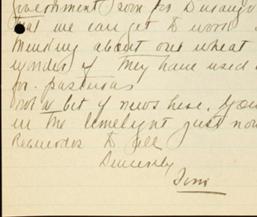 Government soon for Durango
that we can get to work
thinking about our wheat
wonder if they have used
for pastures
Not a bit of news here. You
in the limelight just now
Recuerdos to all
Sincerely